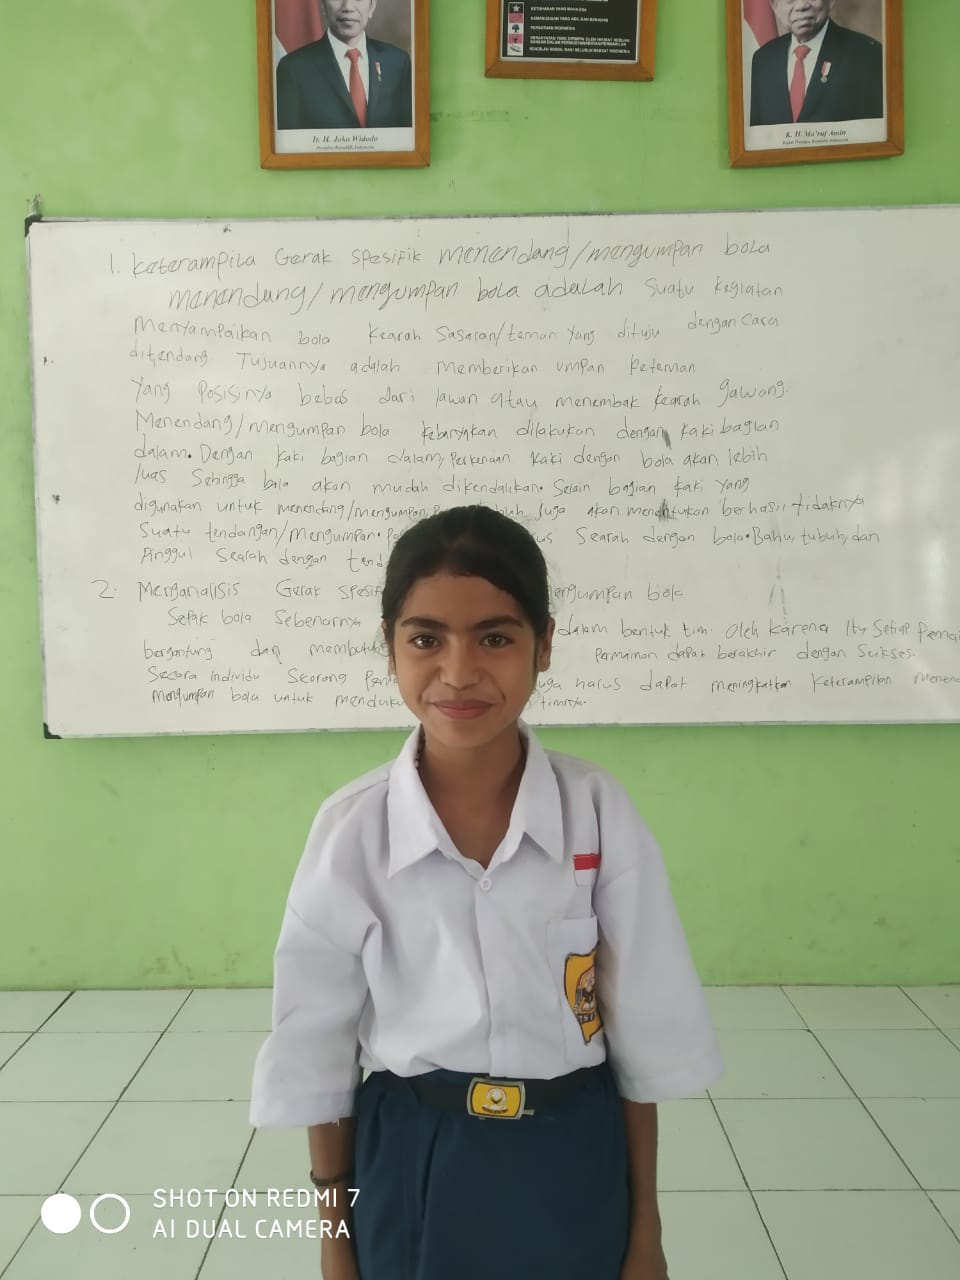 KETUHANAN YANG MAHA ESA
KEMANUSIAAN YANG ADIL DAN BERADAB
PERSATUAN INDONESIA
KERAKYATAN YANG DIPIMPIN OLEH HIKMAT
KEADILAN SOSIAL BAGI SELURUH RAKYAT INDONESIA
Ir. H. Joko Widodo
Presiden Republik Indonesia
K. H. Ma'ruf Amin
Wakil Presiden Republik Indonesia
1. keterampila Gerak spesifik menendang/mengumpan bola
menendang/mengumpan bola adalah suatu kegiatan
Menyampaikan bola kearah Sasaran/teman yang dituju dengan cara
ditendang Tujuannya adalah memberikan umpan keteman
yang Posisinya bebas dari lawan atau menembak kearah gawang.
Menendang/mengumpan bola kebanyakan dilakukan dengan kaki bagian
dalam. Dengan kaki bagian dalam, Perkenaan kaki dengan bola akan lebih
luas Sehingga bola akan mudah dikendalikan. Selain bagian kaki yang
digunakan untuk menendang/mengumpan, Juga akan menentukan berhasil tidaknya
Suatu tendangan/mengumpan. Searah dengan bola. Bahu, tubuh, dan
Pinggul Searah dengan
2. Menganalisis Gerak bola
Sepak bola Sebenarnya dalam bentuk tim. Oleh karena Itu Setiap
bergantung dan Permainan dapat berakhir dengan Sukses.
Secara individu Seorang harus dapat meningkatkan Keterampilan
mengumpan bola untuk timnya.
SHOT ON REDMI 7
AI DUAL CAMERA